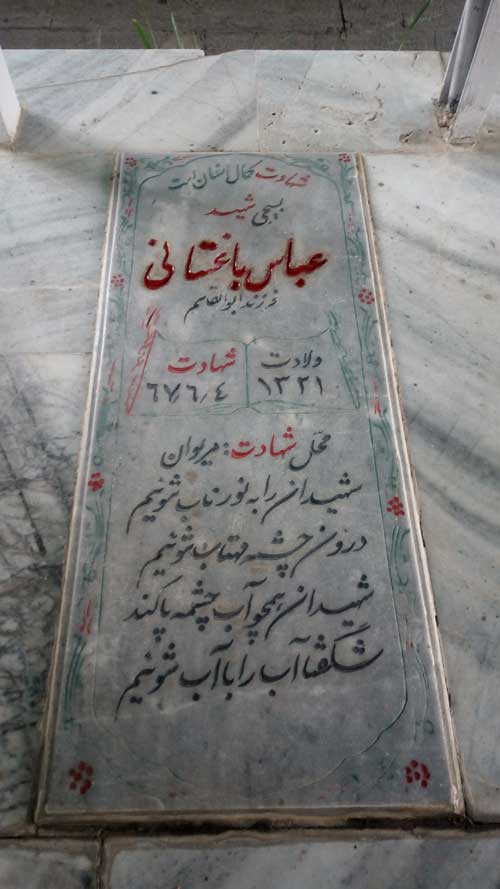 شهادت کمال انسان است
بسیجی شهید
عباس باغستانی
فرزند ابوالقاسم
ولادت شهادت
۱۳۲۱ ۶۷٫۶٫۴
محل شهادت: مریوان
شهیدان را به نور ناب شوئیم
درون چشمه مهتاب شوئیم
شهیدان همچو آب چشمه پاکند
شگفتا آب را با آب شوئیم